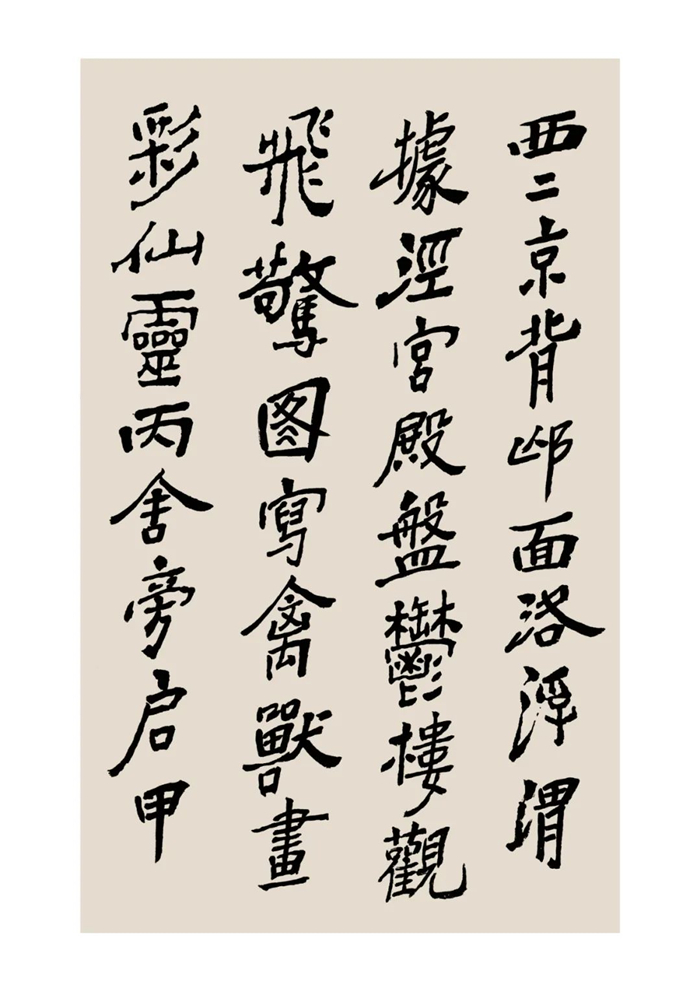 西二京背邙面洛浮渭
據涇宮殿盤鬱樓觀
飛驚图寫禽獸畫
彩仙靈丙舍旁启甲